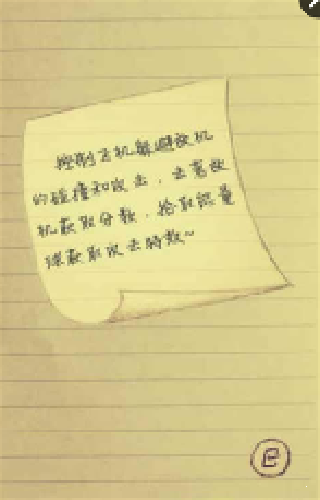 控制主机躲避敌机
的碰撞和攻击，击落敌
机获取分数，拾取能量
球获取攻击特效~